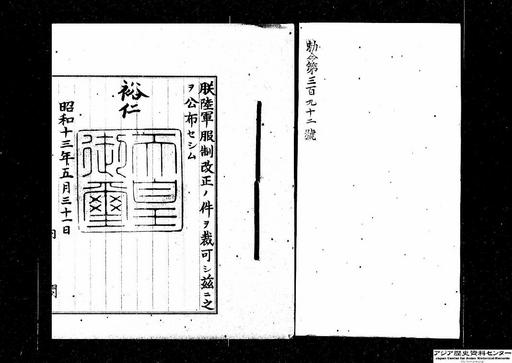 勅令第三百九十二號
朕陸軍服制改正ノ件ヲ裁可シ茲ニ之
ヲ公布セシム
裕仁
天皇
御璽
昭和十三年五月三十一日
内閣
アジア歴史資料センター
Japan Center for Asian Historical Records